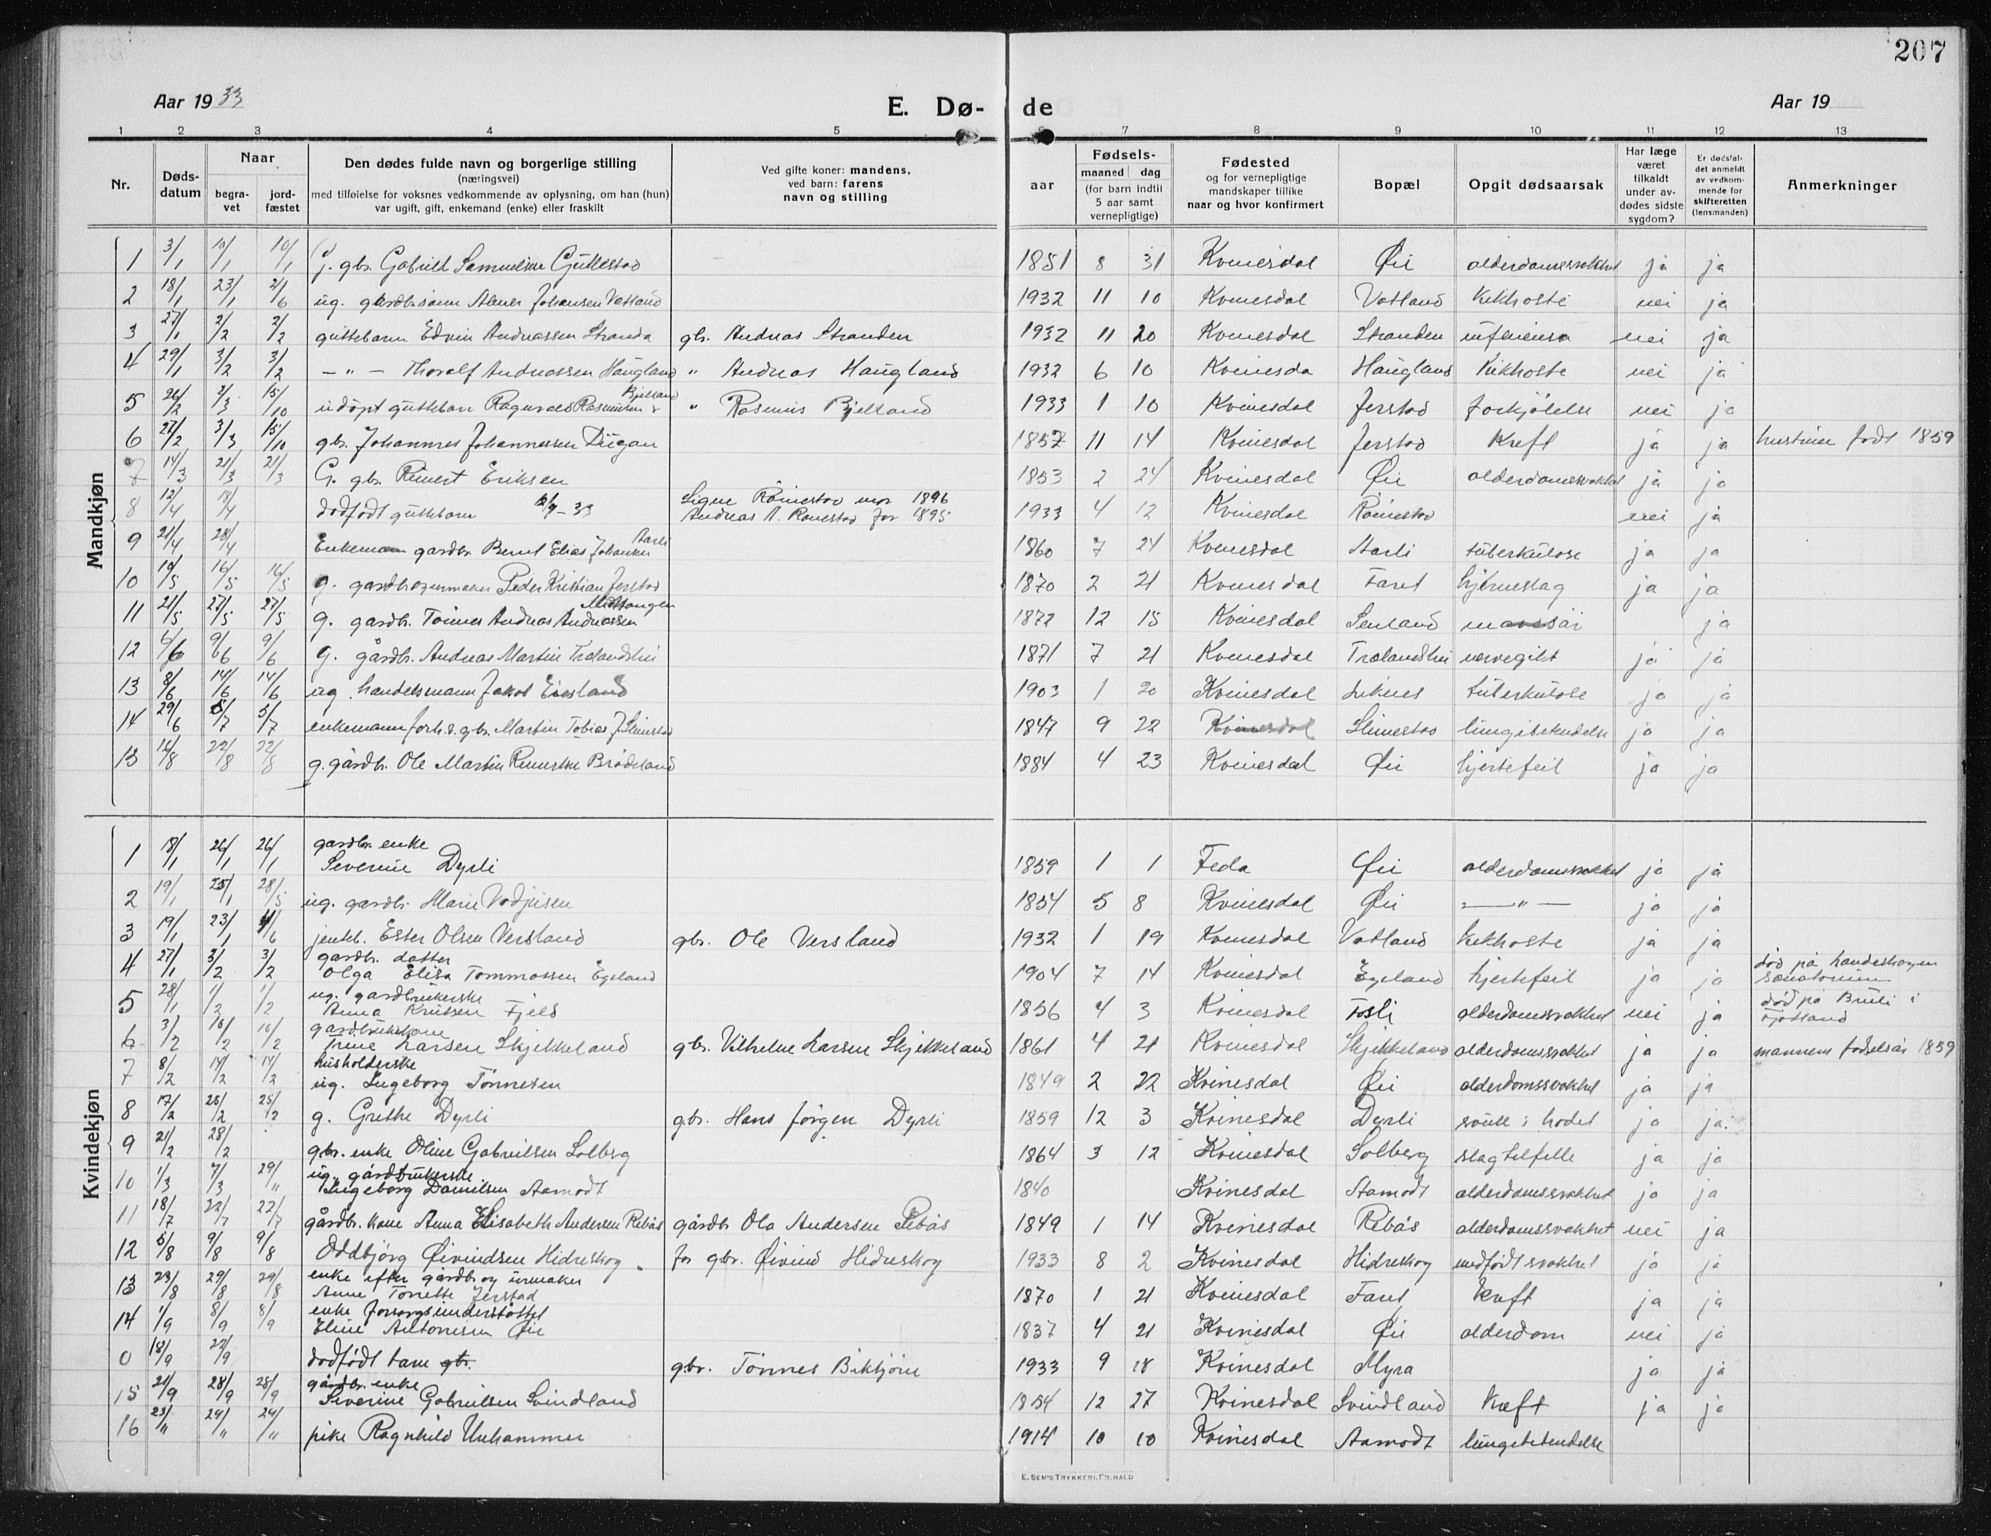 207
Aar 1933
E. Dø-
de
Aar 19
1 2 3 4 5 6 7 8 9 10 11 12 13
Nr.
Døds-
datum
Naar
begra-
vet
jord-
fæstet
Den dødes fulde navn og borgerlige stilling
(næringsvei)
med tilføielse for voksnes vedkommende av oplysning, om han (hun)
var ugift, gift, enkemand (enke) eller fraskilt
Ved gifte koner: mandens,
ved barn: farens
navn og stilling
aar
Fødsels-
maaned dag
(for barn indtil
5 aar samt
vernepligtige)
Fødested
og for vernepligtige
mandskaper tillike
naar og hvor konfirmert
Bopæl
Opgit dødsaarsak
Har læge
været
tilkaldt
under av-
dødes sidste
sygdom?
Er dødsfal-
det anmeldt
av vedkom-
mende for
skifteretten
(lensmanden)
Anmerkninger
Mandkjøn
1 3/1 10/1 10/1 G. gbr. Gabriel Samuelsen Gullestad 1851 8 31 Kvinesdal Øie alderdomssvakhet ja ja
2 18/1 23/1 2/6 ug. gårdbr.sønn Abner Johansen Vatland 1932 11 10 Kvinesdal Vatland Kikhoste nei ja
3 27/1 2/2 2/2 guttebarn Edvin Andreassen Stranda gbr. Andreas Stranden 1932 11 20 Kvinesdal Stranden influensa nei ja
4 29/1 3/2 3/2 — " — Thoralf Andreassen Haugland " Andreas Haugland 1932 6 10 Kvinesda Haugland Kikhoste nei ja
5 26/2 3/3 15/10 udøpt guttebarn Ragnvald Rasmussen Bjelland " Rasmus Bjelland 1933 1 10 Kvinesdal Jerstad forkjølelse nei ja
6 27/2 3/3 15/10 gbr. Johannes Johannessen Dugan 1857 11 14 Kvinesdal Jerstad Kreft ja ja hustruen født 1859
7 14/3 21/3 21/3 G. gbr. Reinert Eriksen 1853 2 24 Kvinesdal Øie alderdomssvakhet ja ja
8 12/4 18/4 dødfødt guttebarn 12/4-33 Signe Røinestad mor 1896
Andreas A. Rønestad far 1895 1933 4 12 Kvinesdal Röinestad nei ja
9 21/4 28/4 Enkemann gårdbr. Bernt Elias Johansen Aarli 1860 7 24 Kvinesdal Aarli tuberkulose ja ja
10 10/5 16/5 16/5 g. gardbr.ogurmaker Peder Kristian Jerstad 1870 2 21 Kvinesdal Faret hjerneslag ja ja
11 21/5 27/5 27/5 g. gardbr. Tønnes Andreas Andreassen 1872 12 15 Kvinesdal Senland mavesår ja
12 4/6 9/6 9/6 g. gårdbr. Andreas Martin Trælandshei 1871 7 21 Kvinesdal Trælandshei ja ja
13 8/6 14/6 14/6 ug. handelsmann Jakob Eiesland 1903 1 20 Kvinesdal Liknes tuberkulose ja ja
14 29/6 5/7 5/7 enkemann forh.v. gbr. Martin Tobias J. Slimestad 1847 9 22 Kvinesdal Slimestad lungebetendelse ja ja
15 16/8 22/8 22/8 g. gårdbr. Ole Martin Reinertsen Brådeland 1884 4 23 Kvinesdal Øie hjertefeil ja ja
Kvindekjøn
1 18/1 26/1 26/1 gardbr. enke
Severine Dyrli 1859 1 1 Feda Øie alderdomssvakhet ja ja
2 19/1 25/1 28/5 ug. gardbr. Marie Vadjusen 1854 5 8 Kvinesdal Øie — " — ja ja
3 19/1 23/1 4/6 jenteb. Ester Olsen Versland gbr. Ole Versland 1932 1 19 Kvinesdal Vatland Kikhoste ja ja
4 27/1 3/2 3/2 gardbr. datter
Olga Elisa Tommassen Egeland 1904 7 14 Kvinesdal Egeland hjertefeil ja ja død på Landeskogen
sanatorium
5 28/1 1/2 1/2 ug. gardbrukerske
Anna Knutsen Fjeld 1856 4 3 Kvinesdal Fosli alderdomssvakhet nei ja død på Bruli i
Fjotland
6 3/2 10/2 10/2 gardbrukerkone
Trine Larsen Skjekkeland gbr. Vilhelm Larsen Skjekkeland 1861 4 21 Kvinesdal Skjekkeland alderdomssvakhet ja ja mannens fødselsår 1859
7 8/2 14/2 14/2 husholderske
ug. Ingeborg Tønnesen 1849 2 22 Kvinesdal Øie alderdomssvakhet ja ja
8 17/2 25/2 25/2 g. Grethe Dyrli gbr. Hans Jørgen Dyrli 1859 12 3 Kvinesdal Dyrli svulst i hodet ja ja
9 21/2 28/2 gbr. enke Oline Gabrielsen Solberg 1864 3 12 Kvinesdal Solberg slagtilfelle ja ja
10 1/3 7/3 29/" ug. gårdbrukerske
Ingeborg Danielsen Aamodt 1840 Kvinesdal Aamodt alderdomssvakhet ja ja
11 18/7 22/7 22/7 gårdbr. kone Anna Elisabeth Andersen Rebås gårdbr Ola Andersen Rebås 1849 1 14 Kvinesdal Rebås alderdomssvakhet nei ja
12 5/8 9/8 9/8 Oddbjørg Øivindsen Hidreskog far gbr. Øivind Hidreskog 1933 8 2 Kvinesdal Hidreskog medfødt svakhet ja ja
13 23/8 29/8 29/8 enke efter gårdbr og urmaker
Anne Tonette Jerstad 1870 1 21 Kvinesdal Faret Kreft ja ja
14 1/9 8/9 8/9 enke forsorgsunderstøttet
Eline Antonisen Øie 1837 4 21 Kvinesdal Øie alderdom nei ja
0 18/9 22/9 dødfødt barn gbr. gbr. Tønnes Bikbjørn 1933 9 18 Kvinesdal Myra ja ja
15 21/9 28/9 28/9 gårdbr. enke
Severine Gabrielsen Svindland 1854 12 27 Kvinesdal Svindland Kreft ja ja
16 23/" 24/" 24/" pike Ragnhild Urhammer 1914 10 10 Kvinesdal Aamodt lungebetendelse
E. SEM'S TRYKKERI, FR.HALD